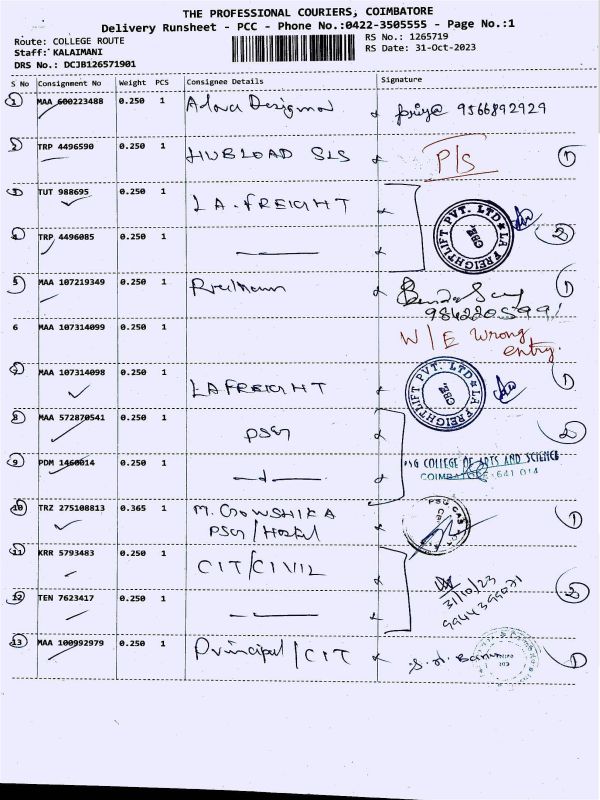 THE PROFESSIONAL COURIERS, COIMBATORE
Delivery Runsheet - PCC - Phone No.:0422-3505555 - Page No.:1
Route: COLLEGE ROUTE
RS No.: 1265719
Staff: KALAIMANI
RS Date: 31-Oct-2023
DRS No.: DCJB126571901
S No Consignment No Weight PCS Consignee Details Signature
1 MAA 600223488 0.250 1 priya 9566892929
2 TRP 4496590 0.250 1 HUBLOAD SLS P/S 1
3 TUT 988695 0.250 1 LA.FREIGHT
LA FREIGHTLIFT PVT. LTD CBE.
4 TRP 4496085 0.250 1 2
5 MAA 107219349 0.250 1 1
6 MAA 107314099 0.250 1 W/E Wrong
entry.
7 MAA 107314098 0.250 1 LAFREIGHT 1
LA FREIGHTLIFT PVT. LTD CBE.
8 MAA 572870541 0.250 1 PSG 2
9 PDM 1460014 0.250 1
PSG COLLEGE OF ARTS AND SCIENCE
COIMBATORE - 641 014
10 TRZ 275108813 0.365 1 M. GOWSHIKA 1
PSG/Hostel
11 KRR 5793483 0.250 1 CIT/CIVIL
31/10/23
12 TEN 7623417 0.250 1 2
13 MAA 100992979 0.250 1 Principal/CIT 1